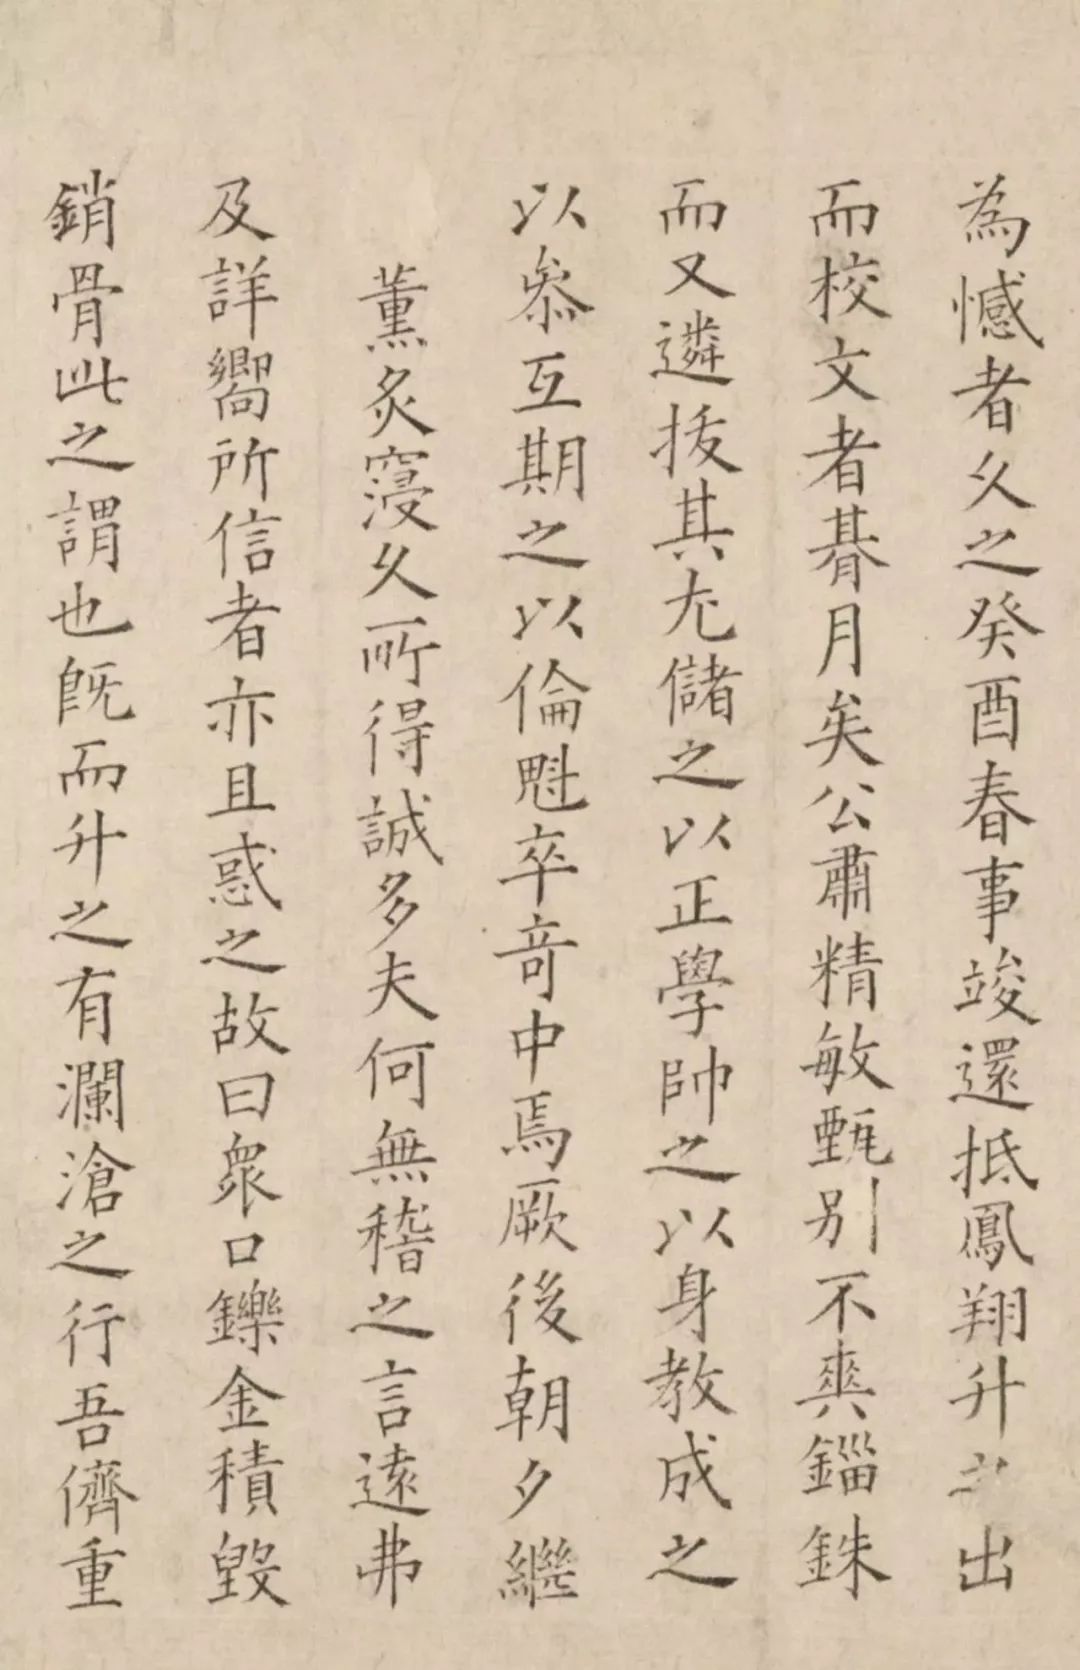 為憾者久之癸酉春事竣還抵鳳翔升之出
而校文者朞月矣公肅精敏甄别不爽錙銖
而又遴拔其尤儲之以正學帥之以身教成之
以叅互期之以倫魁卒竒中焉厥後朝夕繼
薰炙寖久所得誠多夫何無稽之言逺弗
及詳嚮所信者亦且惑之故曰衆口鑠金積毀
銷骨此之謂也既而升之有瀾滄之行吾儕重